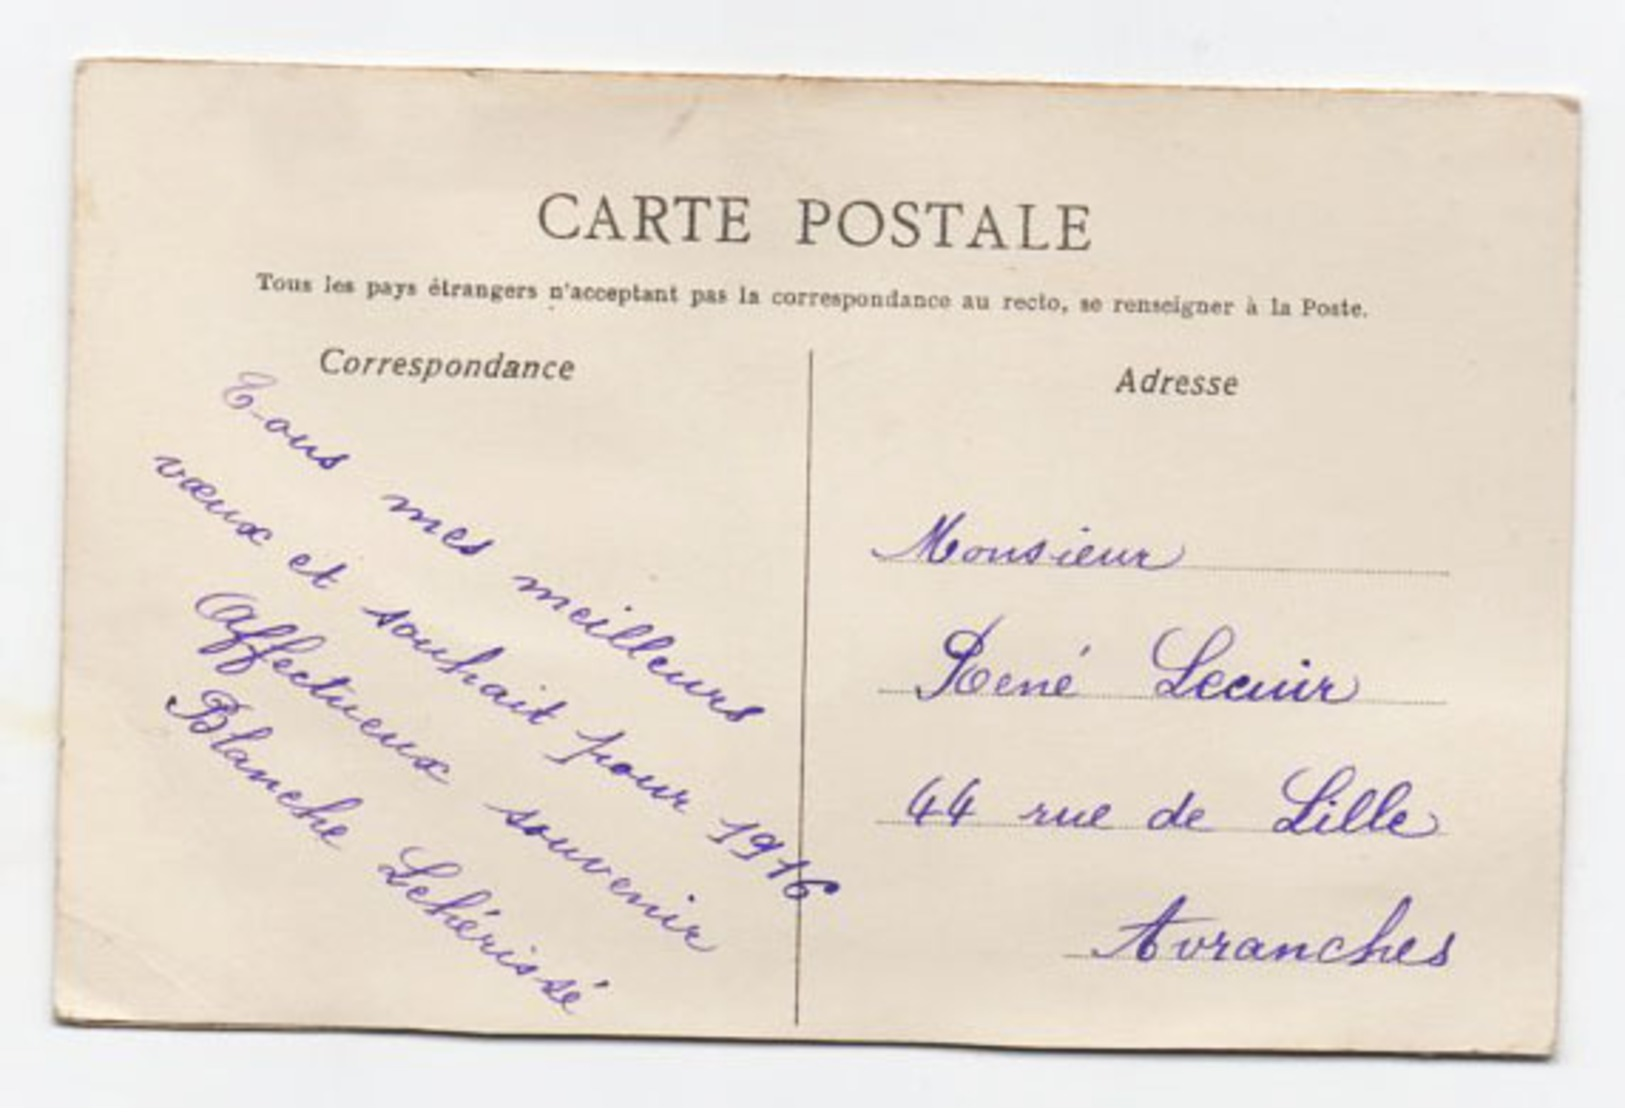 CARTE POSTALE
Tous les pays étrangers n'acceptant pas la correspondance au recto, se renseigner à la Poste.
Correspondance
Tous mes meilleurs
vœux et souhait pour 1916
Affectueux souvenir
Blanche Lehérissé
Adresse
Monsieur
René Lecuir
44 rue de Lille
Avranches